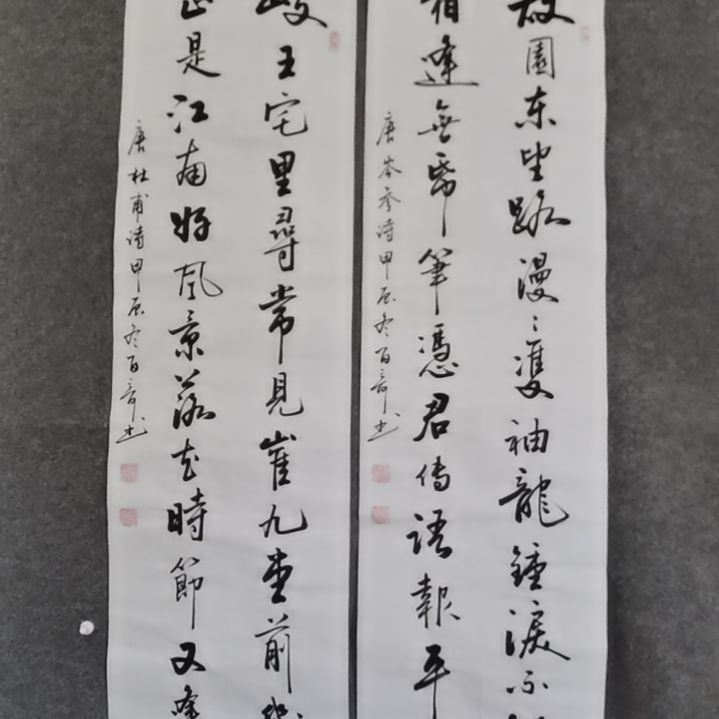 故園東望路漫〻雙袖龍鍾淚不
相逢無帋筆憑君傳語報平
唐岑參詩甲辰冬百
岐王宅里尋常見崔九堂前幾
正是江南好風景落花時節又逢
唐杜甫詩甲辰冬百